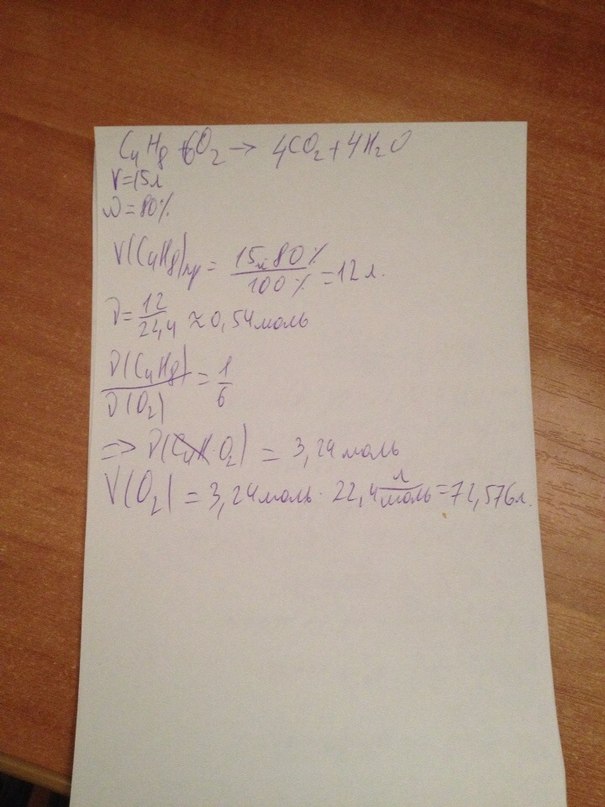 C₄H₈ + 6O₂ → 4CO₂ + 4H₂O
V=15л
ω=80%
V(C₄H₈)пр = 15л·80% / 100% = 12 л.
ν = 12 / 22,4 ≈ 0,54 моль
ν(C₄H₈) / ν(O₂) = 1 / 6
=> ν(O₂) = 3,24 моль
V(O₂) = 3,24 моль · 22,4 л/моль = 72,576 л.